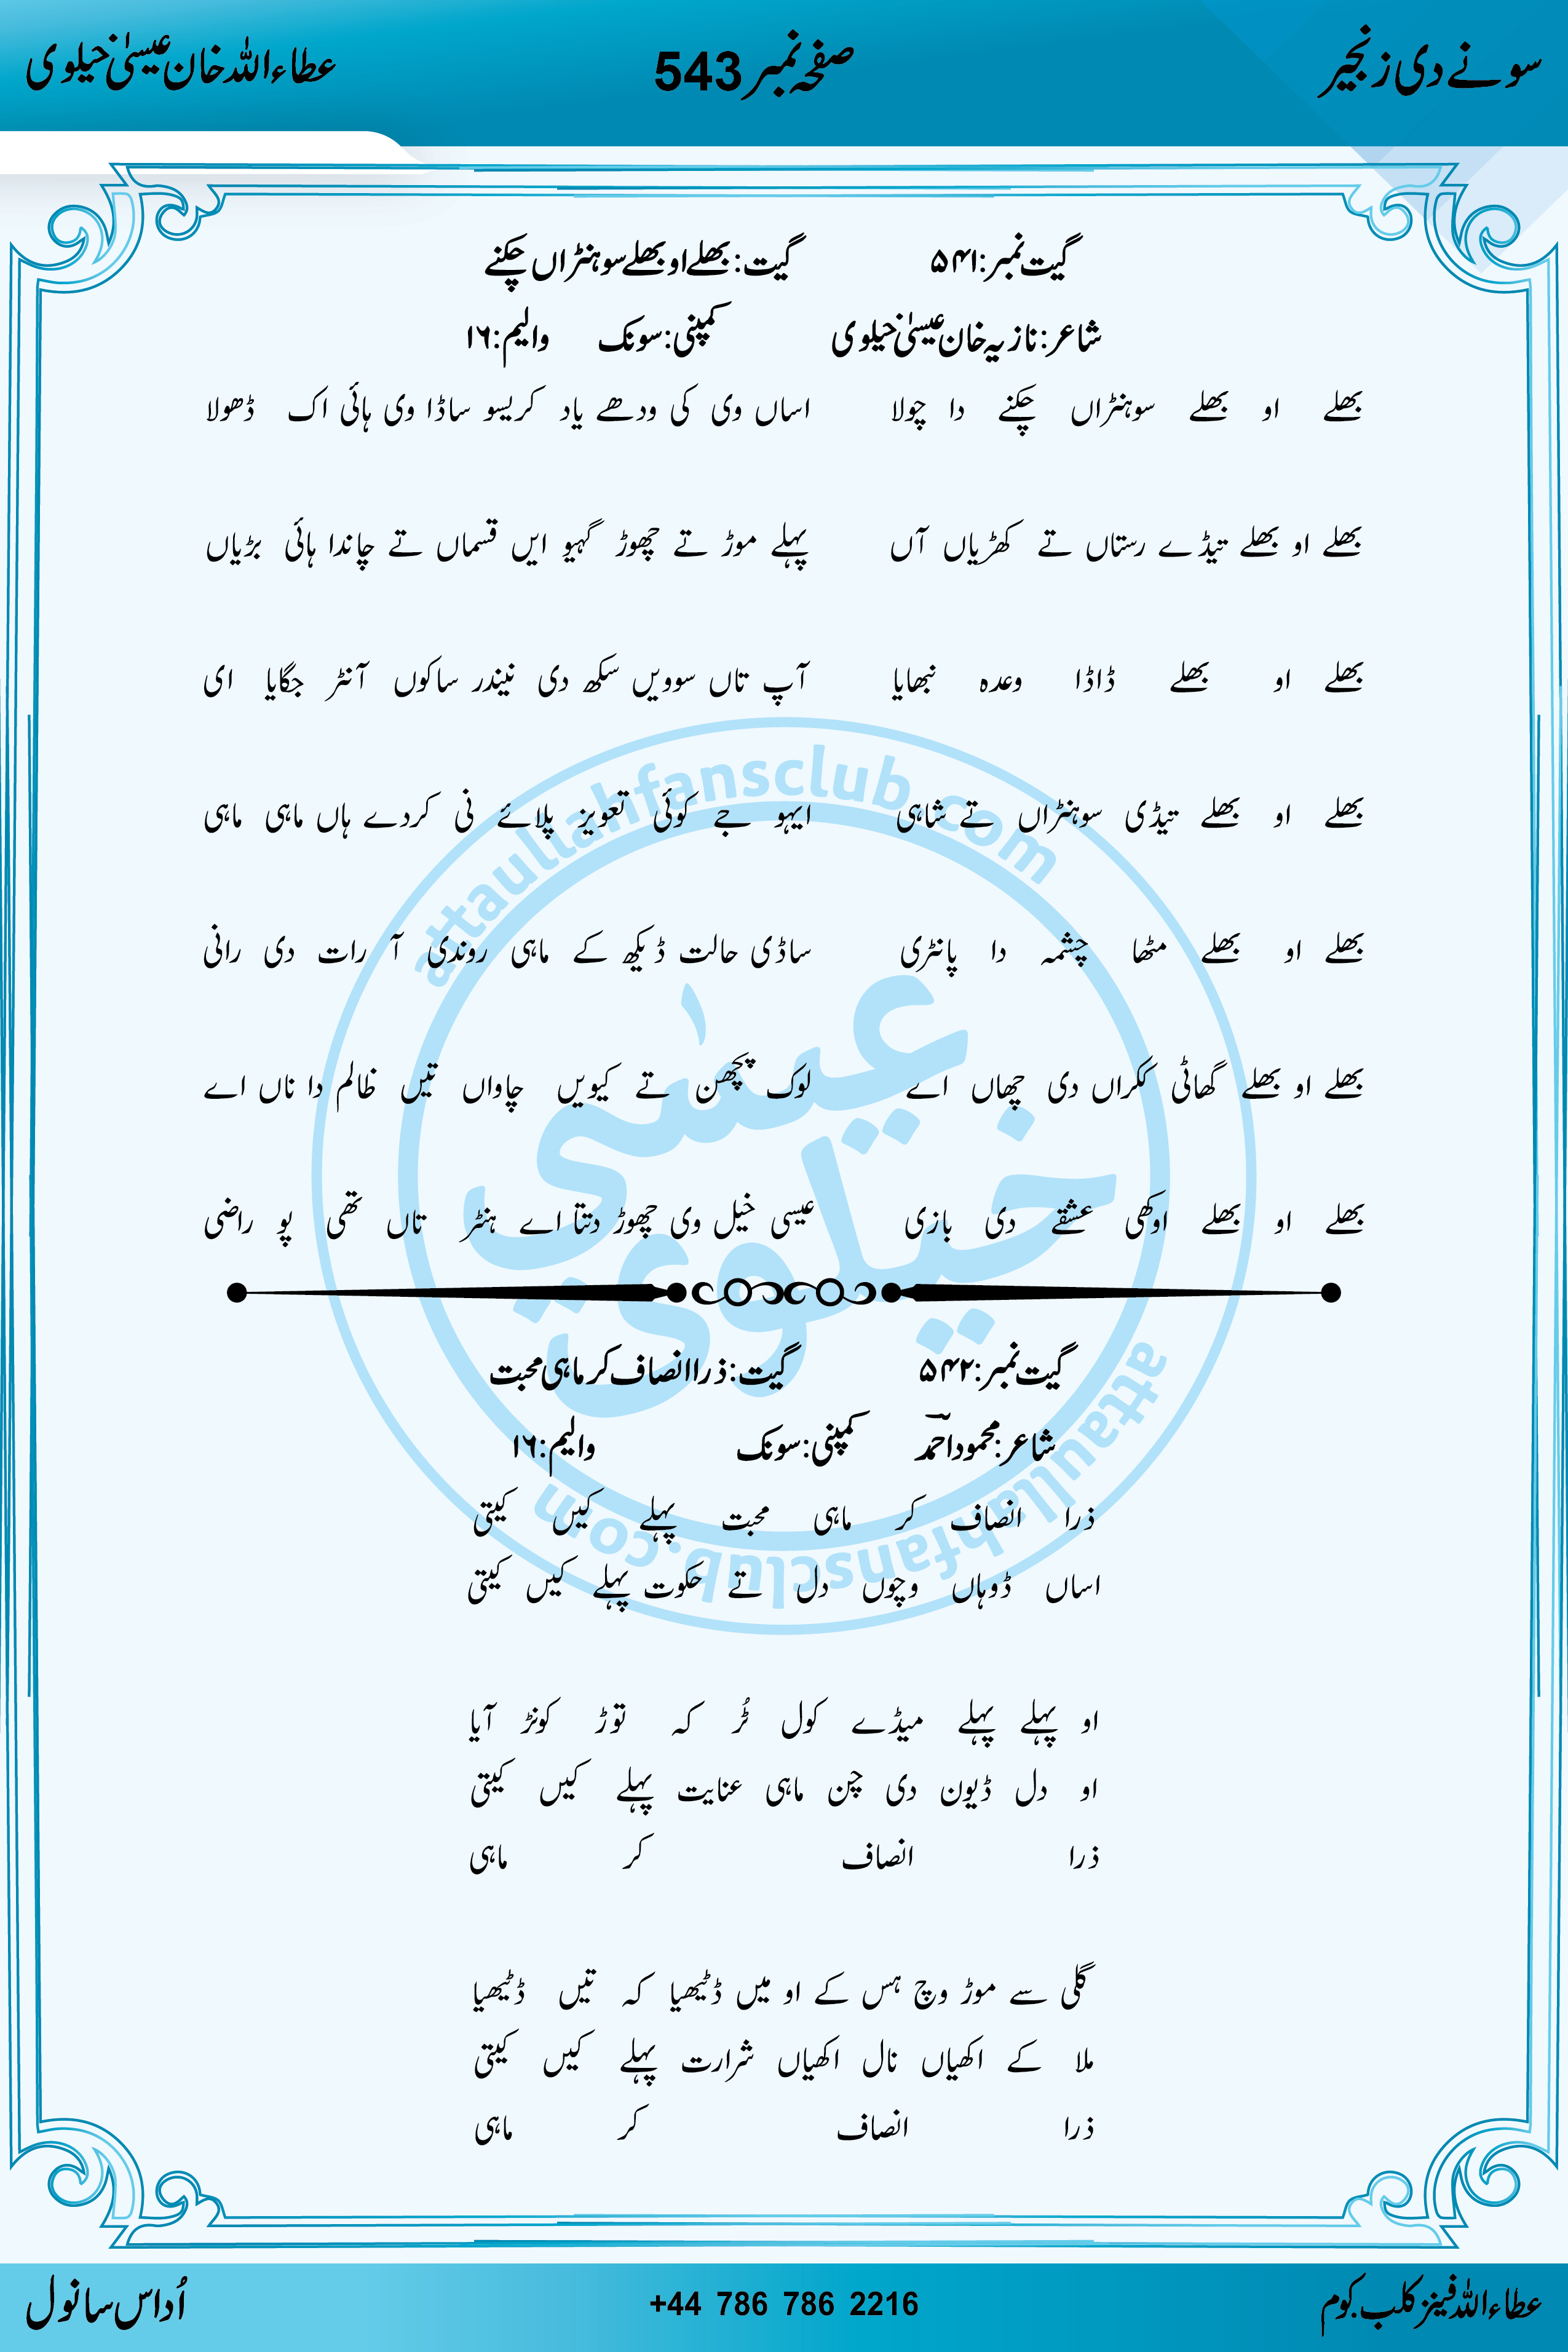 سونے دی زنجیر صفحہ نمبر 543 عطاءاللہ خان عیسیٰ خیلوی
گیت نمبر: ۵۴۱ گیت: بھلے او بھلے سوہنڑاں چکنے
شاعر: نازیہ خان عیسیٰ خیلوی کمپنی: سونک والیم: ۱۶
بھلے او بھلے سوہنڑاں چکنے دا چولا اساں وی کی ودھے یاد کریسو ساڈا وی ہائی اک ڈھولا
بھلے او بھلے تیڈے رستاں تے کھڑیاں آں پہلے موڑ تے چھوڑ گہیو ایں قسماں تے چاندا ہائی بڑیاں
بھلے او بھلے ڈاڈا وعدہ نبھایا آپ تاں سوویں سکھ دی نیندر ساکوں آنٹر جگایا ای
بھلے او بھلے تیڈی سوہنڑاں تے شاہی ایہو جے کوئی تعویز پلائے نی کردے ہاں ماہی ماہی
بھلے او بھلے مٹھا چشمہ دا پانٹری ساڈی حالت ڈیکھ کے ماہی روندی آ رات دی رانی
بھلے او بھلے گھاٹی ککراں دی چھاں اے لوک پچھن تے کیویں چاواں تیں ظالم دا ناں اے
بھلے او بھلے اوکھی عشقے دی بازی عیسی خیل وی چھوڑ دتتا اے ہنٹر تاں تھی پو راضی
گیت نمبر: ۵۴۲ گیت: ذرا انصاف کر ماہی محبت
شاعر: محمود احمد کمپنی: سونک والیم: ۱۶
ذرا انصاف کر ماہی محبت پہلے کیں کیتی
اساں ڈوہاں وچوں دل تے حکوت پہلے کیں کیتی
او پہلے پہلے میڈے کول ٹُر کہ توڑ کونڑ آیا
او دل ڈیون دی چن ماہی عنایت پہلے کیں کیتی
ذرا انصاف کر ماہی
گلی سے موڑ وچ ہس کے او میں ڈٹیھیا کہ تیں ڈٹیھیا
ملا کے اکھیاں نال اکھیاں شرارت پہلے کیں کیتی
ذرا انصاف کر ماہی
attaullahfansclub.com
عیسٰی
خیلوی
attaullahfansclub.com
عطاءاللہ فینز کلب.کوم +44 786 786 2216 اُداس سانول